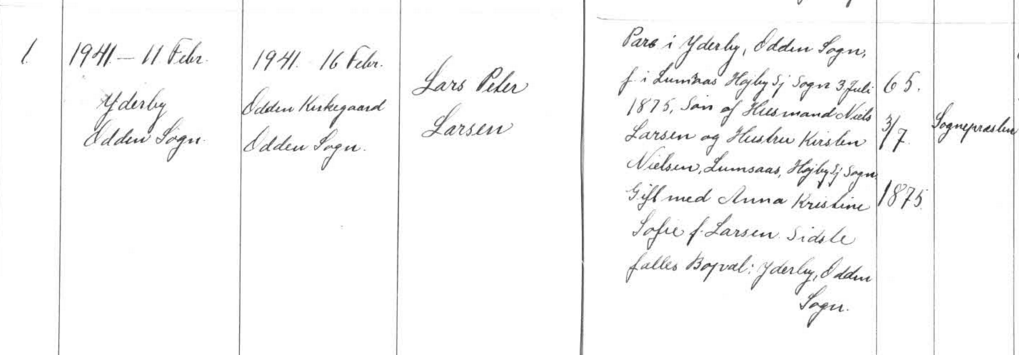 1
1941 – 11 Febr.
Yderby
Odden Sogn.
1941. 16 Febr.
Odden Kirkegaard
Odden Sogn.
Lars Peter
Larsen
i Yderby, Odden Sogn,
f. i Lumsaas Højby Sj Sogn 3 Juli
1875, Søn af Husmand Niels
Larsen og Hustru Kirsten
Nielsen, Lumsaas, Højby Sj Sogn
Gift med Anna Kristine
Sofie f. Larsen. Sidste
fælles Bopæl: Yderby, Odden
Sogn.
65.
3/7
1875.
Sognepræsten